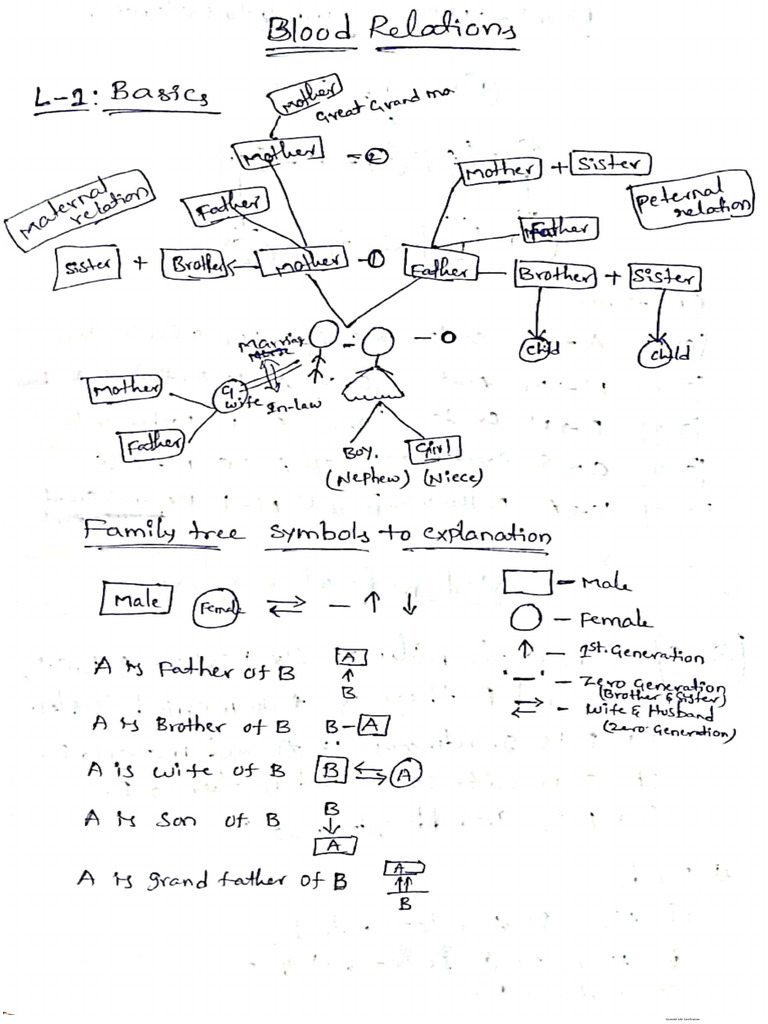 Blood Relations
L-1: Basics
Mother
Great Grand ma
Mother - 2
Mother + Sister
Maternal relation
Father
Peternal relation
Father
Sister + Brother Mother - 1 Father Brother + Sister
Child Child
- - 0
Marriage
Mother
wife
In-law
Father
Boy. Girl
(Nephew) (Niece)
Family tree symbols to explanation
Male Female ⇄ — ↑ ↓
□ - Male
○ - Female
↑ - 1st. Generation
— - Zero Generation
(Brother & Sister)
⇄ - Wife & Husband
(Zero Generation)
A is Father of B A ↑ B
A is Brother of B B - A
A is wife of B B ⇄ A
A is Son of B B ↓ A
A is grand father of B A ↑↑ B